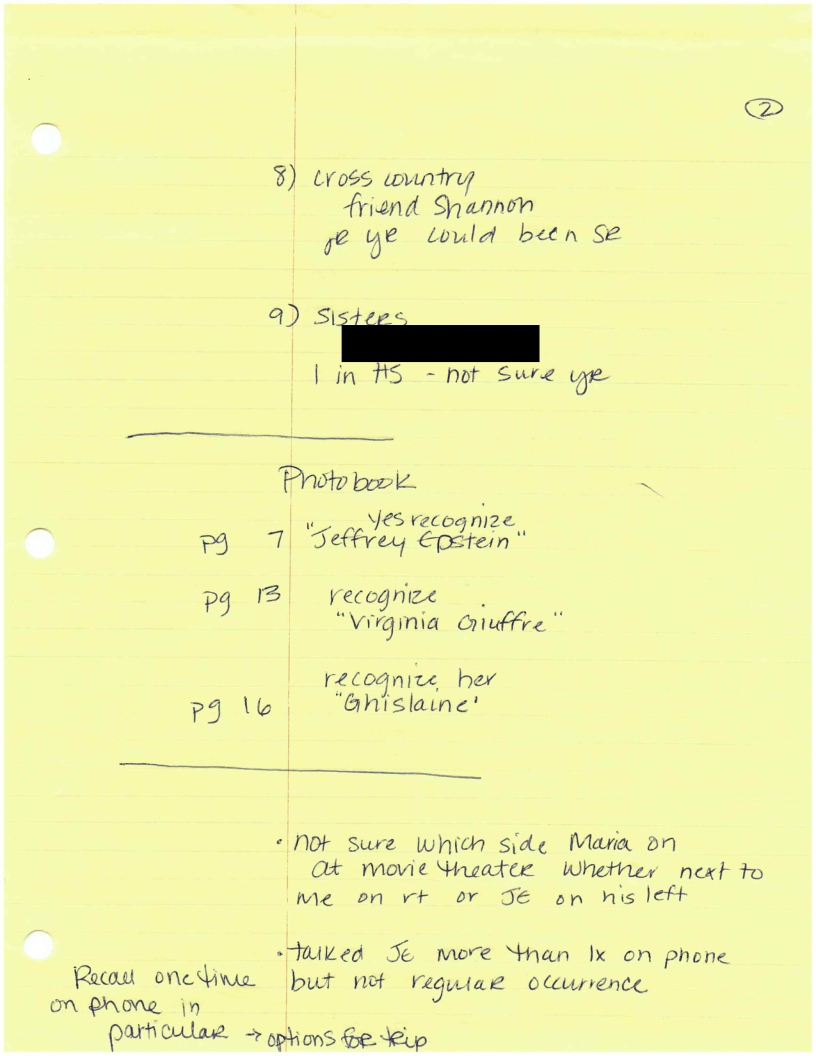 2
8) cross country
friend Shannon
jr yr could been sr
9) Sisters
1 in HS - not sure yr
Photobook
yes recognize
pg 7 "Jeffrey Epstein"
pg 13 recognize
"Virginia Giuffre"
recognize her
pg 16 "Ghislaine'
• not sure which side Maria on
at movie theater whether next to
me on rt or JE on his left
• talked JE more than 1x on phone
but not regular occurrence
Recall one time
on phone in
particular → options for trip